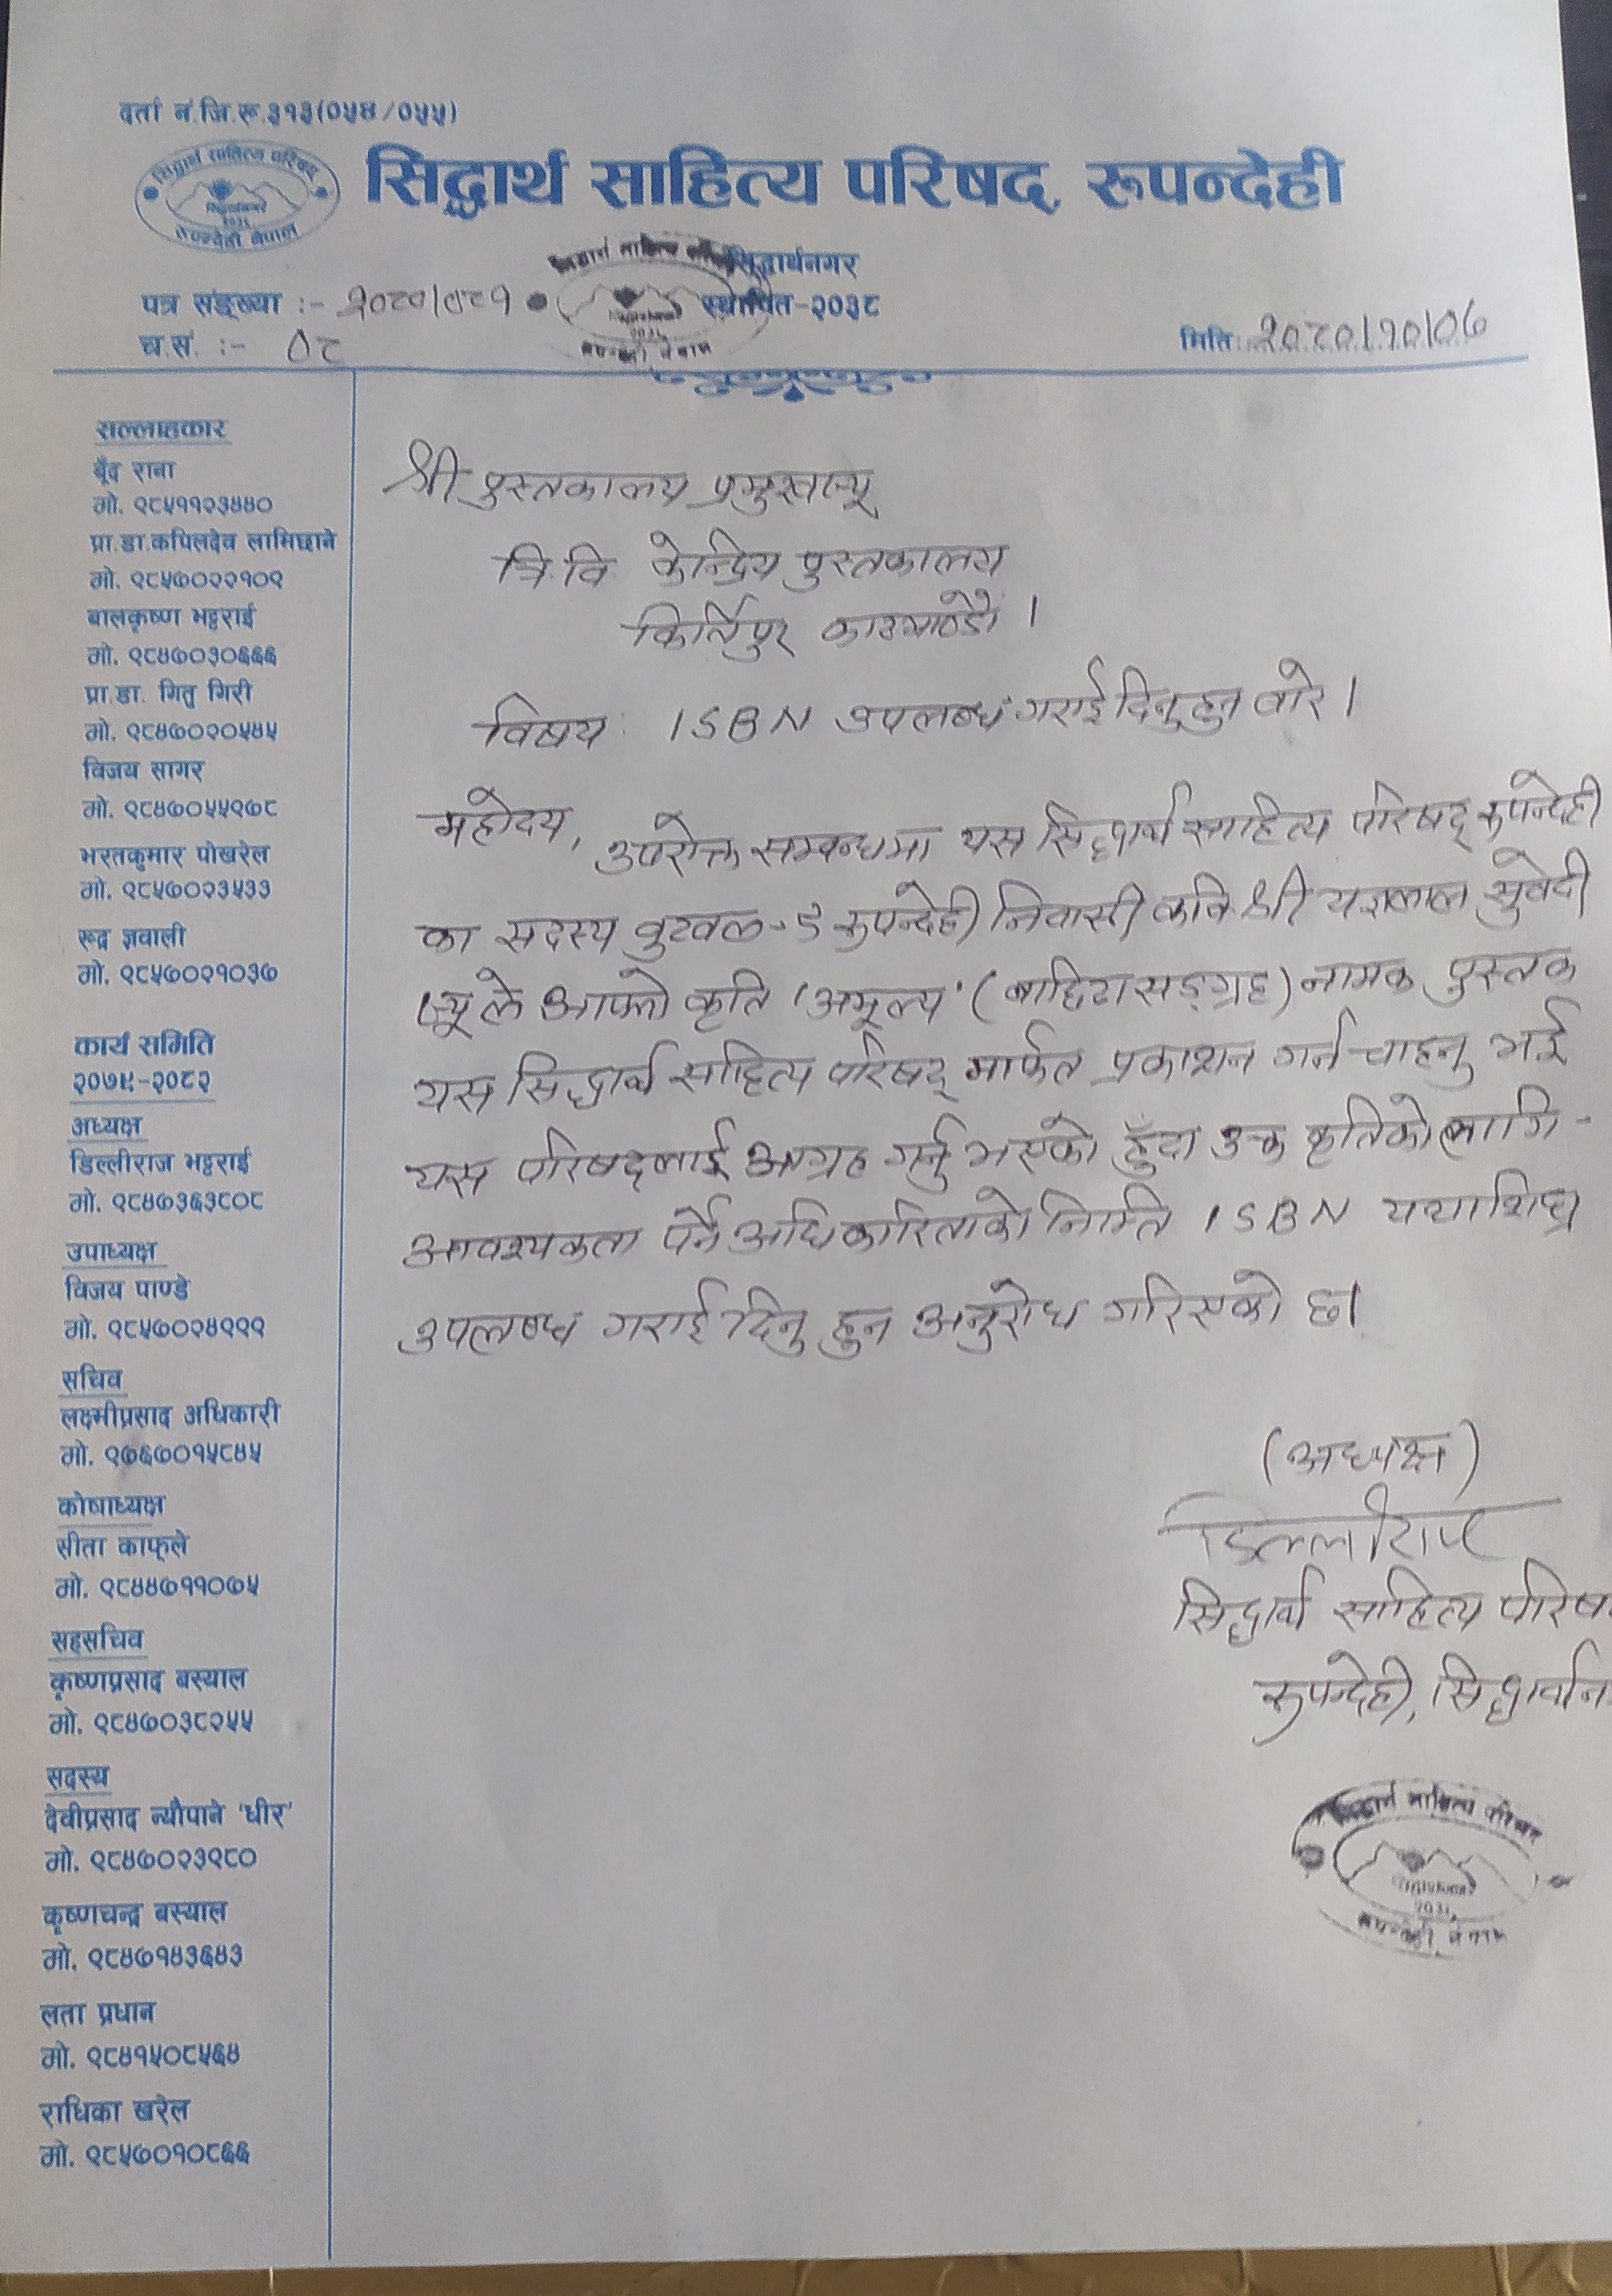 दर्ता नं.जि.रू.३१३(०५४/०५५)
सिद्धार्थ साहित्य परिषद्, रुपन्देही
सिद्धार्थ साहित्य परिषद्
सिद्धार्थनगर
२०३८
रुपन्देही नेपाल
सिद्धार्थनगर
स्थापित-२०३८
पत्र सङ्ख्या :- २०८०/०८१
च.सं. :- ०८
मिति: २०८०/१०/०७
सल्लाहकार
बूँद राना
मो. ९८५११२३४४०
प्रा.डा.कपिलदेव लामिछाने
मो. ९८५७०२२१०९
बालकृष्ण भट्टराई
मो. ९८४७०३०६६६
प्रा.डा. गितु गिरी
मो. ९८४७०२०५४५
विजय सागर
मो. ९८४७०५५९७८
भरतकुमार पोखरेल
मो. ९८५७०२३५३३
रूद्र ज्ञवाली
मो. ९८५७०२१०३७
कार्य समिति
२०७९-२०८२
अध्यक्ष
डिल्लीराज भट्टराई
मो. ९८४७३६३८०८
उपाध्यक्ष
विजय पाण्डे
मो. ९८५७०२४९९९
सचिव
लक्ष्मीप्रसाद अधिकारी
मो. ९७६७०१५८४५
कोषाध्यक्ष
सीता काफ्ले
मो. ९८४४७११०७५
सहसचिव
कृष्णप्रसाद बस्याल
मो. ९८४७०३८२५५
सदस्य
देवीप्रसाद न्यौपाने 'धीर'
मो. ९८४७०२३९८०
कृष्णचन्द्र बस्याल
मो. ९८४७१४३६४३
लता प्रधान
मो. ९८४१५०८५६४
राधिका खरेल
मो. ९८५७०१०८६६
श्री पुस्तकालय प्रमुखज्यू
त्रि.वि. केन्द्रिय पुस्तकालय
किर्तिपुर काठमाण्डौ ।
विषय : ISBN उपलब्ध गराई दिनुहुन बारे ।
महोदय, उपरोक्त सम्बन्धमा यस सिद्धार्थ साहित्य परिषद् रुपन्देही
का सदस्य बुटवल-८ रुपन्देही निवासी कवि श्री यज्ञलाल सुवेदी
ज्यूले आफ्नो कृति 'अमूल्य' (कविता सङ्ग्रह) नामक पुस्तक
यस सिद्धार्थ साहित्य परिषद् मार्फत प्रकाशन गर्न चाहनु भई
यस परिषद्लाई आग्रह गर्नु भएको हुँदा उक्त कृतिको लागि -
आवश्यकता पर्ने अधिकारिताको निम्ति ISBN यथाशिघ्र
उपलब्ध गराई दिनु हुन अनुरोध गरिएको छ।
(अध्यक्ष)
डिल्लीराज
सिद्धार्थ साहित्य परिष
रुपन्देही, सिद्धार्थन
सिद्धार्थ साहित्य परिषद
रुपन्देही नेपाल